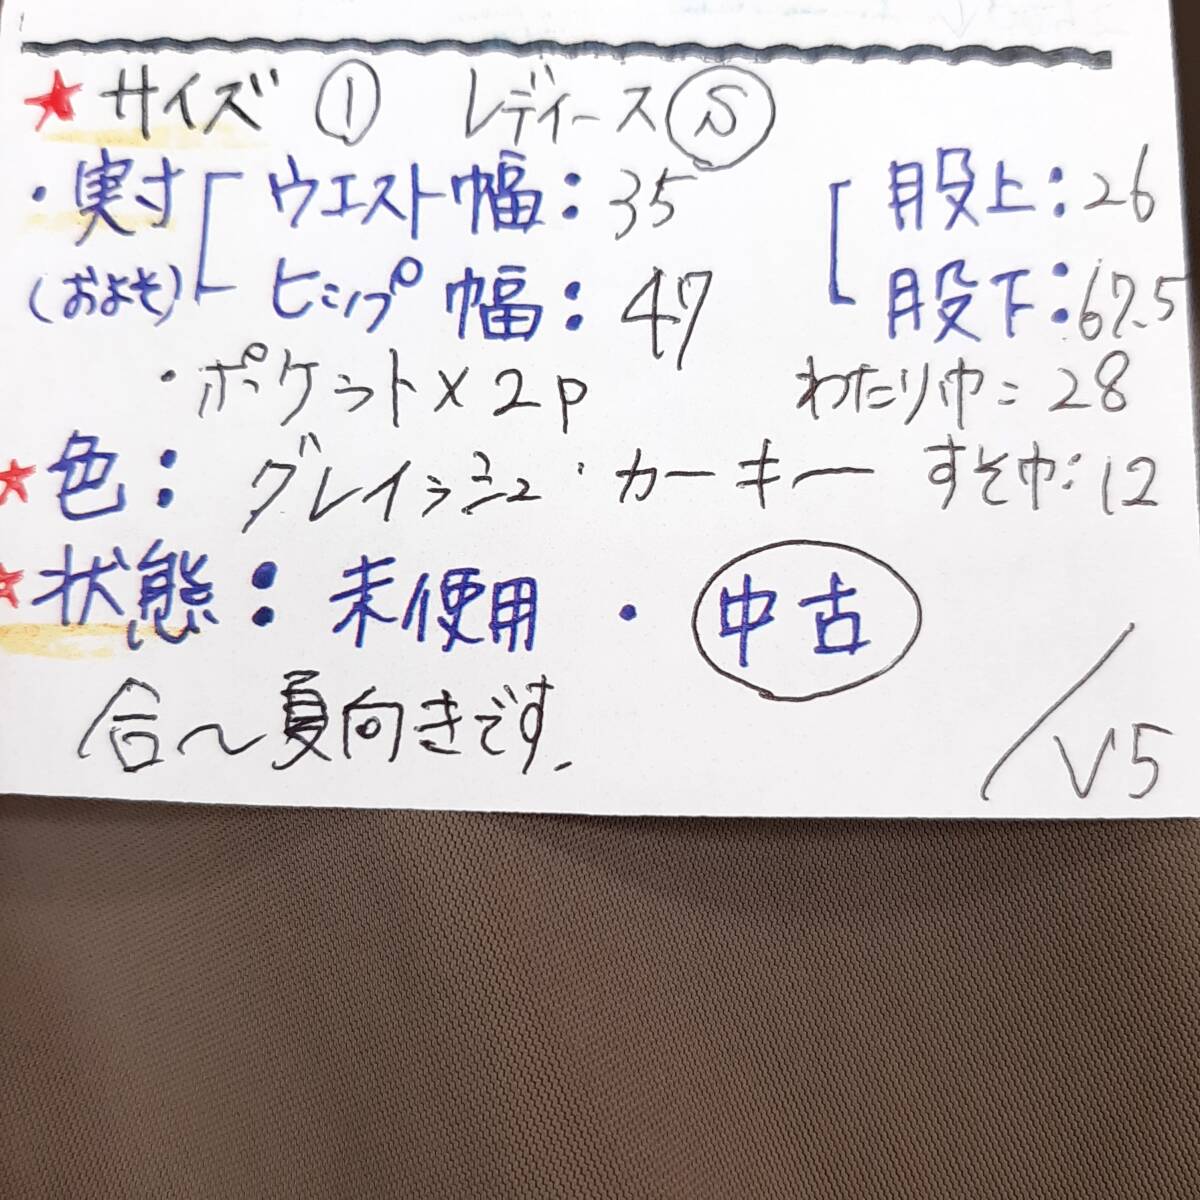 ★サイズ ① レディース Ⓢ
・実寸 ウエスト幅：35 股上：26
(およそ) ヒップ幅：47 股下：67.5
・ポケット×2p わたり巾：28
★色：グレイッシュ・カーキー すそ巾：12
★状態：未使用・中古
合〜夏向きです.
/V5